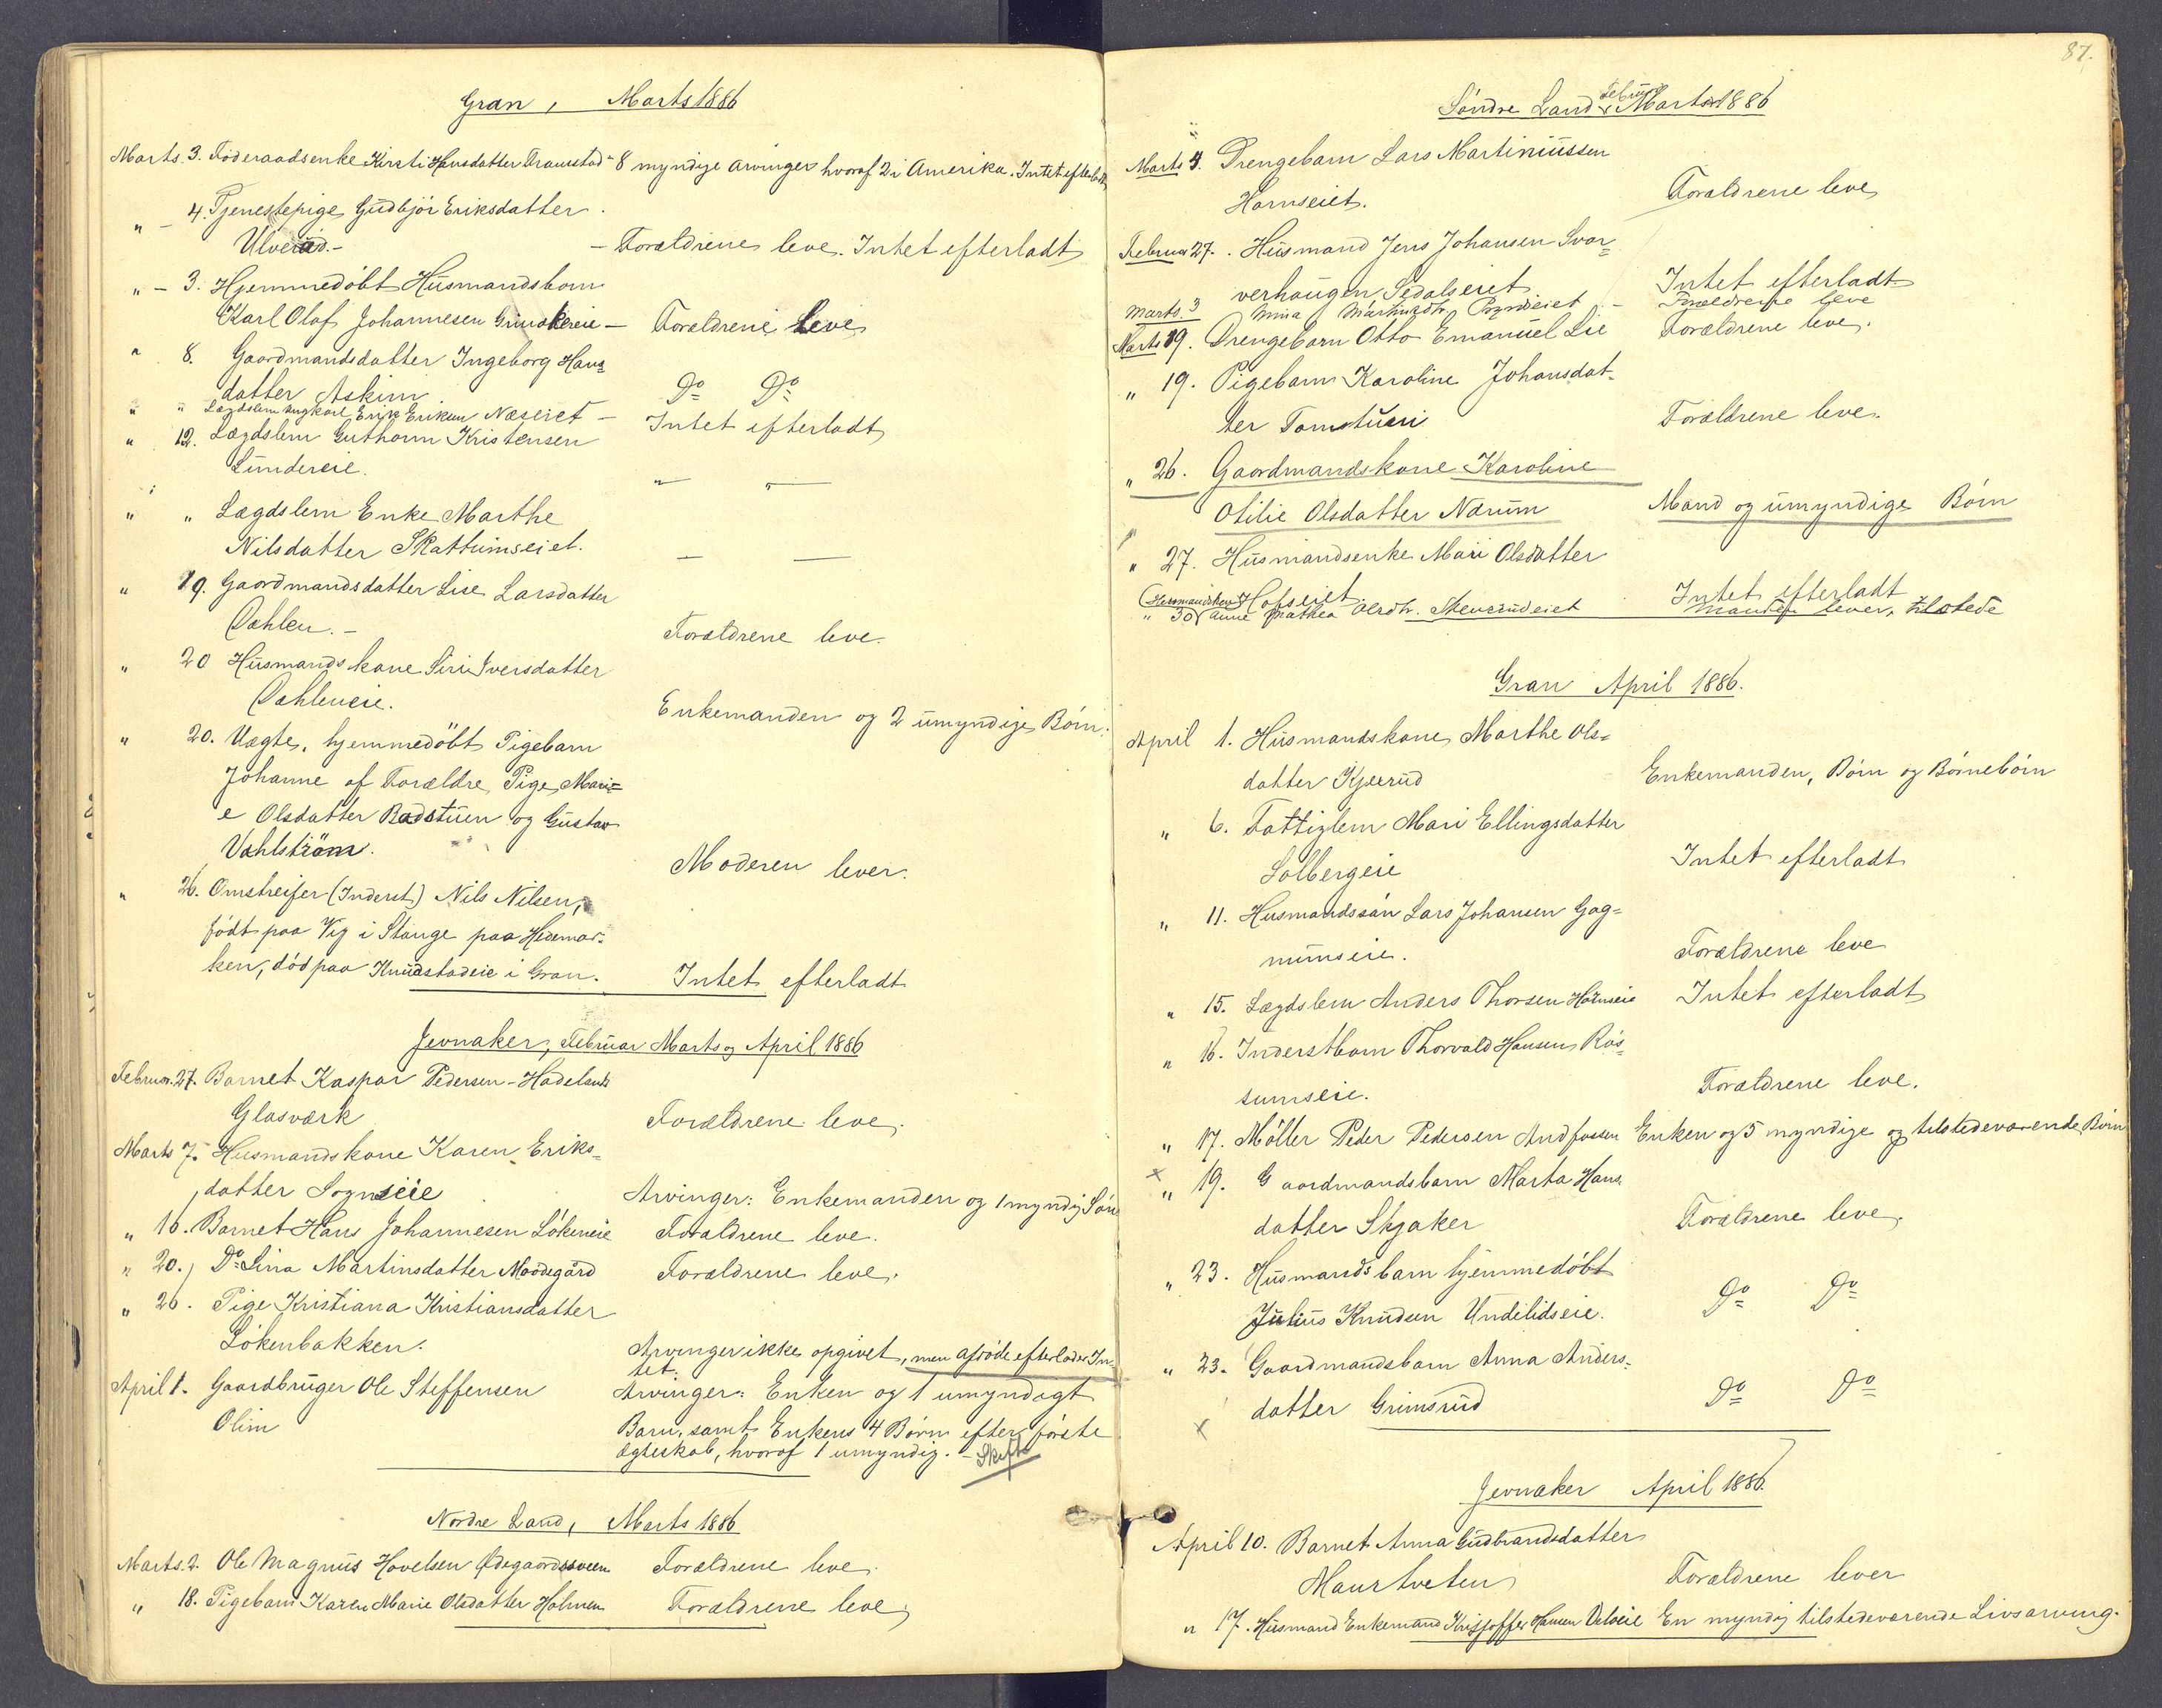 Gran, Marts 1886
Marts. 3. Föderaadsenke Kirsti Hansdatter - 8 myndige Arvinger hvoraf 2 i Amerika. Intet efterladt
" - 4. Tjenestepige Gudbjör Eriksdatter
Ulverud. - - Forældrene leve. Intet efterladt
" - 3. Hjemmedöbt Husmandsbarn
Karl Olaf Johannesen - Forældrene Leve
" 8. Gaardmandsdatter Ingeborg Hans=
datter Askim Do Do
" " Lægdslem Ungkarl Erik Eriksen Næseiet - Intet efterladt
" 12. Lægdslem Guthorm Kristensen
Lundereie. " "
" " Lægdslem Enke Marthe
Nilsdatter Skattumseiet. - -
" 19. Gaardmandsdatter Lise Larsdatter
Dæhlen. - Forældrene leve.
" 20 Husmandskone Siri Iversdatter
Dæhleneie. Enkemanden og 2 umyndige Börn.
" 20. Uægte, hjemmedöbt Pigebarn
Johanne af Forældre, Pige Mari=
e Olsdatter Badstuen og Gustav
Vahlström. Moderen lever.
" 26. Omstreifer (Inderst) Nils Nilsen,
födt paa Vig i Stange paa Hedemar=
ken, död paa Knudstadeie i Gran. Intet efterladt
Jevnaker, Februar Marts og April 1886
Februar. 27. Barnet Kaspar Pedersen - Hadelands
Glasværk Forældrene leve.
Marts 7. Husmandskone Karen Eriks=
datter Sognseie Arvinger: Enkemanden og 1 myndig Sön
" 16. Barnet Hans Johannesen Lökeneie Forældrene leve.
" 20. Do Lina Martinsdatter Moödegård Forældrene leve.
" 26. Pige Kristiana Kristiansdatter
Lökenbakken. Arvinger ikke opgivet, men Afdöde efterlader In=
tet.
April 1. Gaardbruger Ole Steffensen Arvinger: Enken og 1 umyndigt
Olim Barn, samt Enkens 4 Börn efter förste
Ægteskab, hvoraf 1 umyndig. - Skifte
Nordre Land, Marts 1886
Marts. 2. Ole Magnus Hovelsen Ødegaardssveen Forældrene leve.
" 18. Pigebarn Karen Marie Olsdatter Holmen Forældrene leve.
87.
Söndre Land Februar & Marts 1886
Marts 4. Drengebarn Lars Martiniussen
Hornseiet. Forældrene leve
Februar 27. Husmand Jens Johansen Svar=
verhaugen Sedalseiet Intet efterladt
Marts. 3 Mina Martinsdtr. - Forældrene leve
Marts 19. Drengebarn Otto Emanuel Lie Forældrene leve.
" 19. Pigebarn Karoline Johansdat=
ter Tomstuen Forældrene leve.
" 26. Gaardmandskone Karoline
Otilie Olsdatter Nærum Mand og umyndige Börn
" 27. Husmandsenke Mari Olsdatter
Hofseiet. Intet efterladt
" 30 (Husmandskone) Anne Mathea Olsdtr. Skeverudeiet Manden lever, tilstede
Gran April 1886.
April 1. Husmandskone Marthe Ols=
datter Kjærrud Enkemanden, Börn og Börnebörn
" 6. Fattiglem Mari Ellingsdatter
Solbergeie Intet efterladt
" 11. Husmandssön Lars Johansen Gag=
numseie. Forældrene leve
" 15. Lægdslem Anders Thorsen Hornseie Intet efterladt
" 16. Inderstbarn Thorvald Hansen Rös=
sumseie. Forældrene leve.
" 17. Möller Peder Pedersen Andfossen Enken og 5 myndige og tilstedeværende Börn
x " 19. Gaardmandsbarn Marta Hans
datter Skjaker Forældrene leve.
" 23. Husmandsbarn hjemmedöbt
Julius Knudsen Undelidseie. Do Do
" 23. Gaardmandsbarn Anna Anders=
datter Grimsrud Do Do
x
Jevnaker April 1886.
April 10. Barnet Anna Gudbrandsdatter
Maurtveten Forældrene lever
" 17. Husmand Enkemand Kristoffer Hansen En myndig tilstedeværende Livsarving.